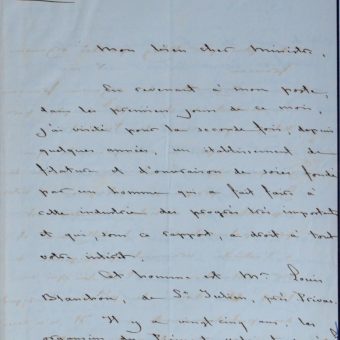 Mon bien cher Ministre,
En revenant à mon poste,
dans les premiers jours de ce mois,
j'ai visité pour la seconde fois, depuis
quelques années, un établissement de
filature et d'ouvraison de soies fondé
par un homme qui a fait faire à
cette industrie des progrès très important
et qui, sous ce rapport, a droit à tout
votre intérêt.
Cet homme est Mr Louis
Blanchon, de St Julien, près Privas.
Il y a vingt cinq ans, les
organsins du